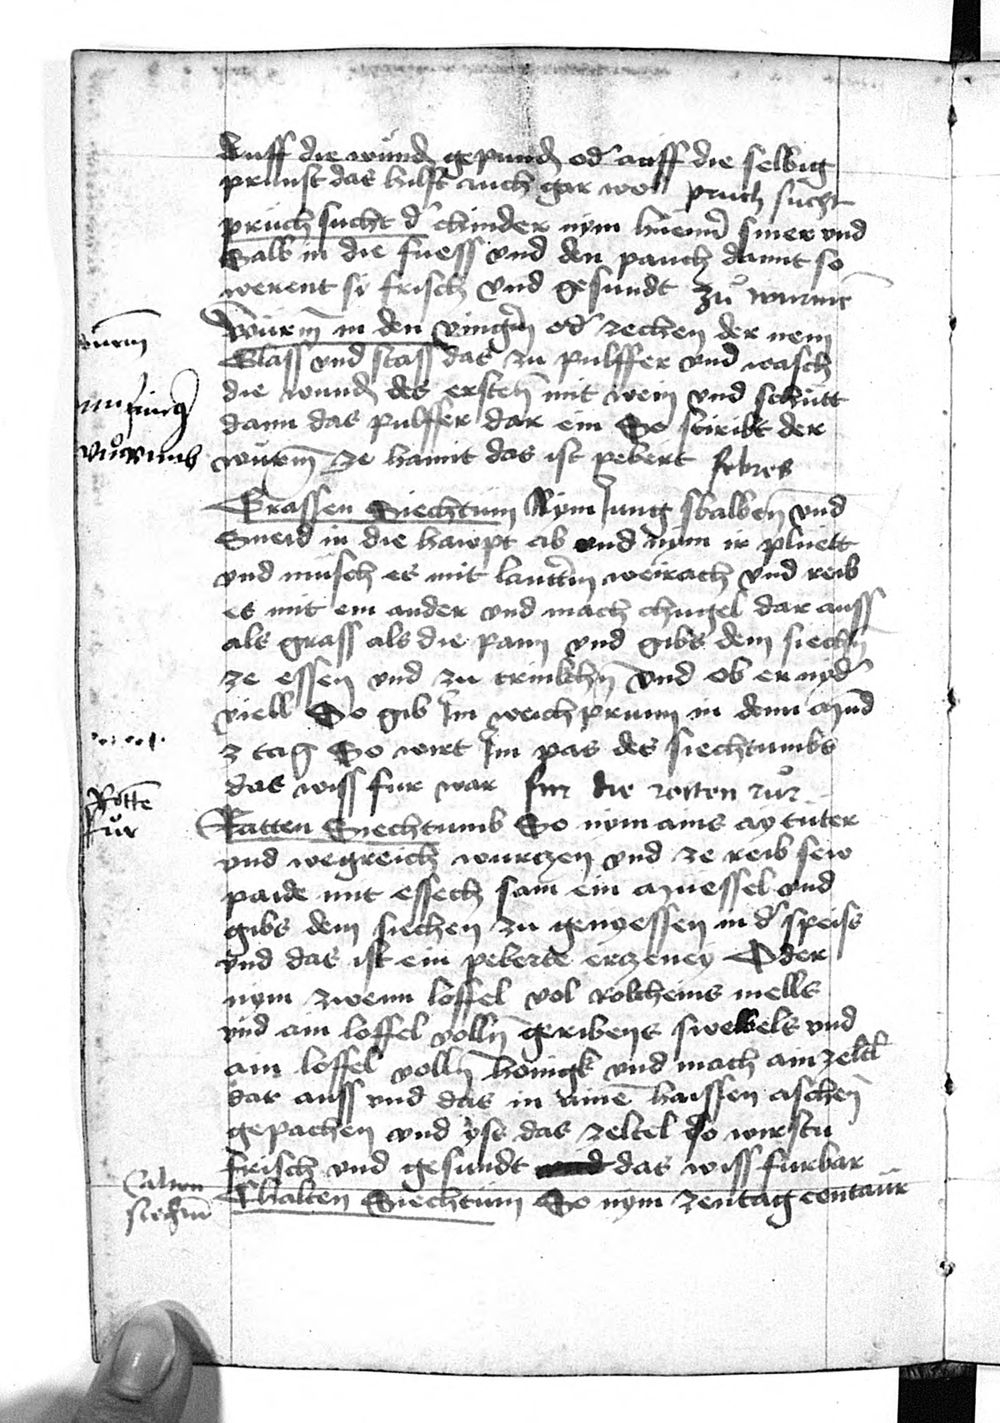 auff die wunden gepunden od' auff die selbig
prunst das hilft auch gar woll pruch sucht
pruch sucht d' chinder nym huenner smer vnd
salb in die fuess vnd den pauch damit so
werent si frisch vnd gesundt zu wurme
wurm
Würm in den vingern od' zechen der nem
Glass vnd stoss das zu pulffer vnd wasch
die wunden des ersten mit wein vnd schutt
fing
dann das pulffer dar ein So stirbt der
wurmb
würm ze hannt das ist pebert febres
Grassen Siechtum Nym jung swalben vnd
Sneid in die hawpt ab vnd nym ir pluett
vnd misch es mit lautterm weirach vnd reib
es mit ein ander vnd mach chugel dar auss
als grass als die pann vnd gibs dem siechen
ze essen vnd zu trinkchen vnd ob er nyd'
viell So gib im weichprunn in dem mund
3 tag So wirt im pas des siechtumbs
das wiss fur war fur die rotten rur
Rotte
rur
Ratten Siechtumb So nym ains ay tuter
vnd wegreich wurczen vnd ze reib sew
paide mit essech sam ein muessel vnd
gibs dem siechen zu genyessen in d' speiss
vnd das ist ein peberte erczeney Oder
nym zwenn loffel vol rokcheins mells
vnd ain loffel vollen geribens swebels vnd
ain loffel vollen honigk vnd mach ain zeltel
dar auss vnd das in ainem haissen aschen
gepachen vnd yss das zeltel so wirstu
frisch vnd gesundt das wiss furbar
Calten
siechtum
Chalten Siechtum So nym zentag centaur